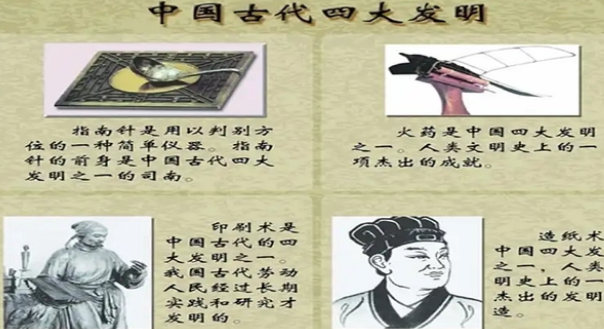 中国古代四大发明
指南针是用以判别方
位的一种简单仪器。指南
针的前身是中国古代四大
发明之一的司南。
火药是中国四大发明
之一。人类文明史上的一
项杰出的成就。
印刷术是
中国古代的四
大发明之一。
我国古代劳动
人民经过长期
实践和研究才
发明的。
造纸术
中国四大发
之一，人类
明史上的一
杰出的发明
造。